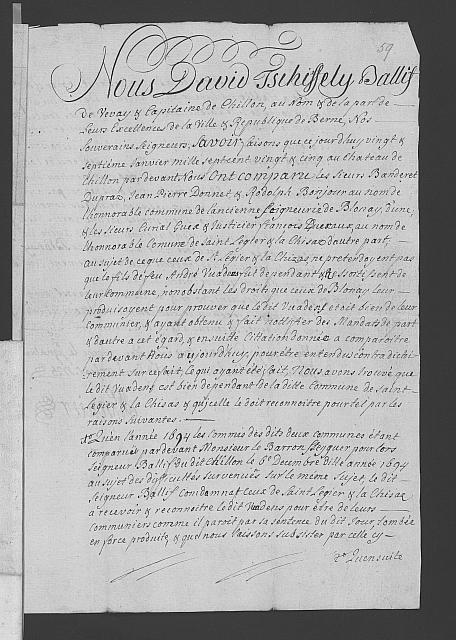 59
Nous David Tschiffely Ballif
de Vevay & Capitaine de Chillon, au nom & de la part de
Leurs Excellences de la Ville & Republique de Berne, Nos
Souverains Seigneurs, Savoir faisons que ce jourdhuy vingt &
septième Janvier mille sept cent vingt & cinq au Chateau de
Chillon pardevant Nous Ont comparu les Sieurs Banderet
Dupraz, Jean Pierre Donnet & Rodolph Bonjour au nom de
l'honnorable commune de l'ancienne Seigneurie de Blonay, d'une,
& les Sieurs Curial & Justicier françois au nom de
l'honnorable Comune de Saint Légier & la Chisaz d'autre part,
au sujet de ce que ceux de St. Légier & la Chizas ne pretendoyent pas
que le fils de feu, André Vuadens fut dependant & ressortissent de
leur Commune, nonobstant les droits que ceux de Blonay leur
produisoyent pour prouver que le dit Vuadens etoit bien de leur
communier, & ayant obtenu & fait nottifier des Mandats de part
& d'autre a cet égard, & ensuite Cittation donnée a comparoitre
pardevant Nous aujourdhuy, pour être entendus contradictoi-
rement sur ce fait, Ce qui ayant été fait, Nous avons trouvé que
le dit Vuadens est bien dependant de la ditte Commune de Saint
Légier & la Chisas & qu'icelle le doit reconnoitre pour tel par les
raisons suivantes.
1o. Qu'en l'année 1694 les Commis des dits deux communes étant
comparus pardevant Monsieur le Barron Steyguer pour lors
Seigneur Ballif du dit Chillon le 6e. Decembre ditte année 1694
au sujet des difficultés survenues sur le même sujet, le dit
Seigneur Ballif condamnat Ceux de Saint Légier & la Chisaz
à recevoir & reconnoitre le dit Vuadens pour être de leurs
Communiers comme il paroit par sa sentence du dit Jour, tombée
en force produite, & que nous laissons subsister par celle cy
2o. Qu'ensuite